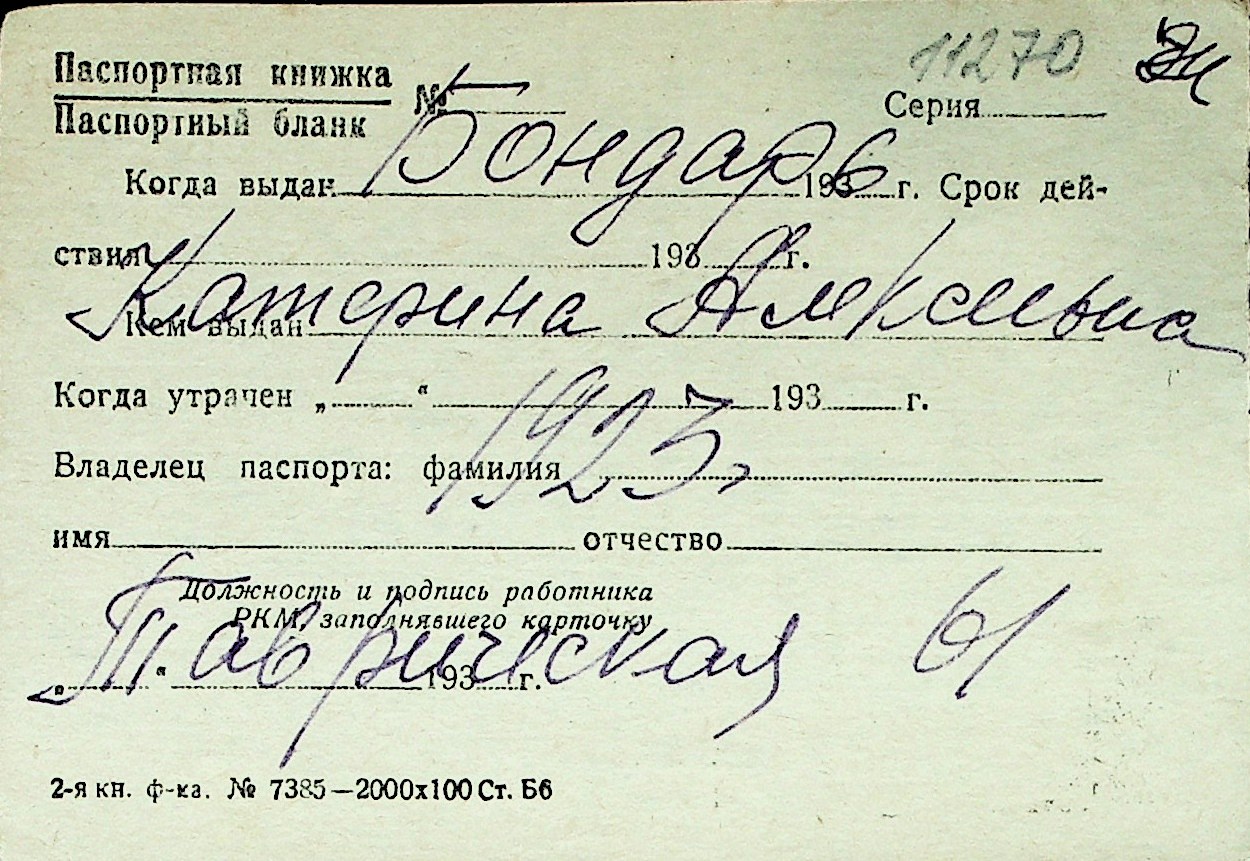 11270
Паспортная книжка
Паспортный бланк № Серия
Бондарь
Когда выдан 193 г. Срок дей-
ствия 193 г.
Катерина Алексеевна
Кем выдан
Когда утрачен „ “ 193 г.
1923
Владелец паспорта: фамилия
имя отчество
Должность и подпись работника
РКМ, заполнявшего карточку
Таврическая 61
„ “ 193 г.
2-я кн. ф-ка. № 7385—2000х100 Ст. Б6